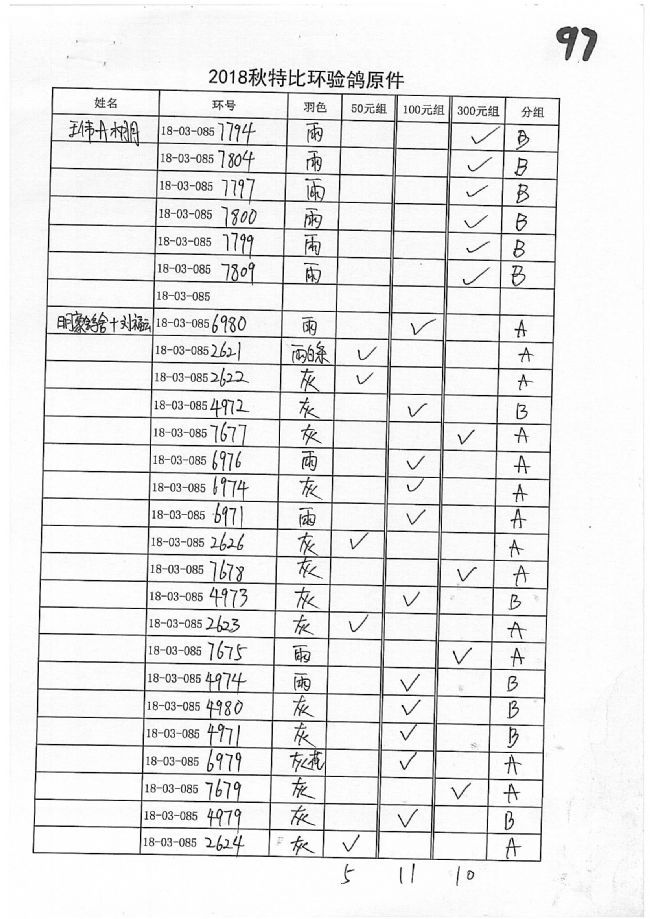 97
2018秋特比环验鸽原件
姓名 环号 羽色 50元组 100元组 300元组 分组
王伟+ 18-03-085 7794 雨 ✓ B
18-03-085 7804 雨 ✓ B
18-03-085 7797 雨 ✓ B
18-03-085 7800 雨 ✓ B
18-03-085 7799 雨 ✓ B
18-03-085 7809 雨 ✓ B
18-03-085
18-03-085 6980 雨 ✓ A
18-03-085 2621 雨白条 ✓ A
18-03-085 2622 灰 ✓ A
18-03-085 4972 灰 ✓ B
18-03-085 7677 灰 ✓ A
18-03-085 6976 雨 ✓ A
18-03-085 6974 灰 ✓ A
18-03-085 6971 雨 ✓ A
18-03-085 2626 灰 ✓ A
18-03-085 7678 灰 ✓ A
18-03-085 4973 灰 ✓ B
18-03-085 2623 灰 ✓ A
18-03-085 7675 雨 ✓ A
18-03-085 4974 雨 ✓ B
18-03-085 4980 灰 ✓ B
18-03-085 4971 灰 ✓ B
18-03-085 6979 灰花 ✓ A
18-03-085 7679 灰 ✓ A
18-03-085 4979 灰 ✓ B
18-03-085 2624 灰 ✓ A
5 11 10